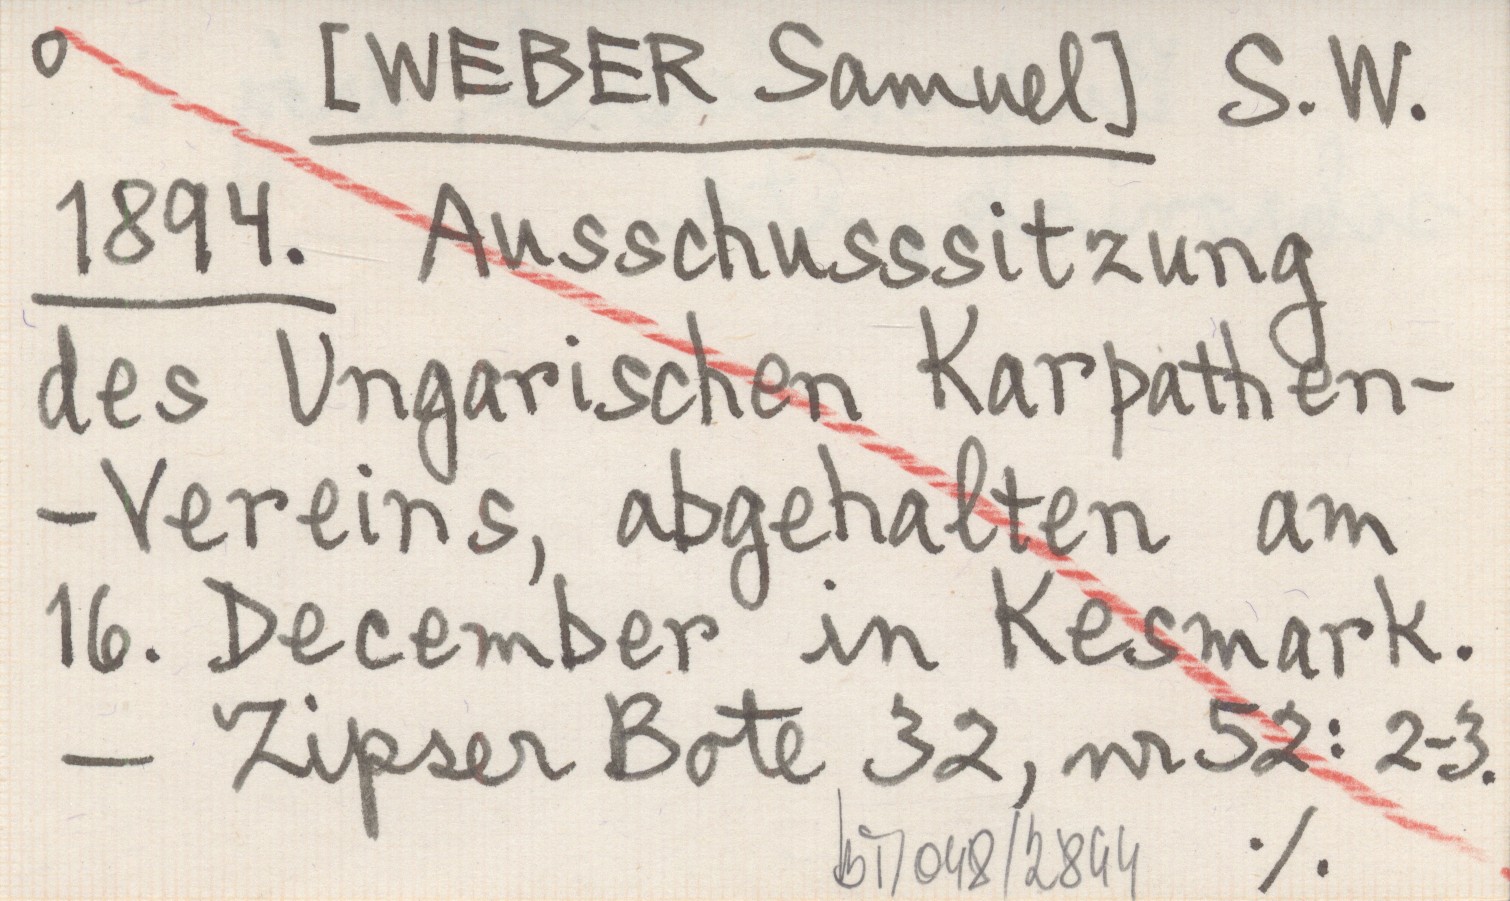 o [WEBER Samuel] S.W.
1894. Ausschusssitzung
des Ungarischen Karpathen-
-Vereins, abgehalten am
16. December in Kesmark.
— Zipser Bote 32, nr 52: 2-3.
048/2844 ./.